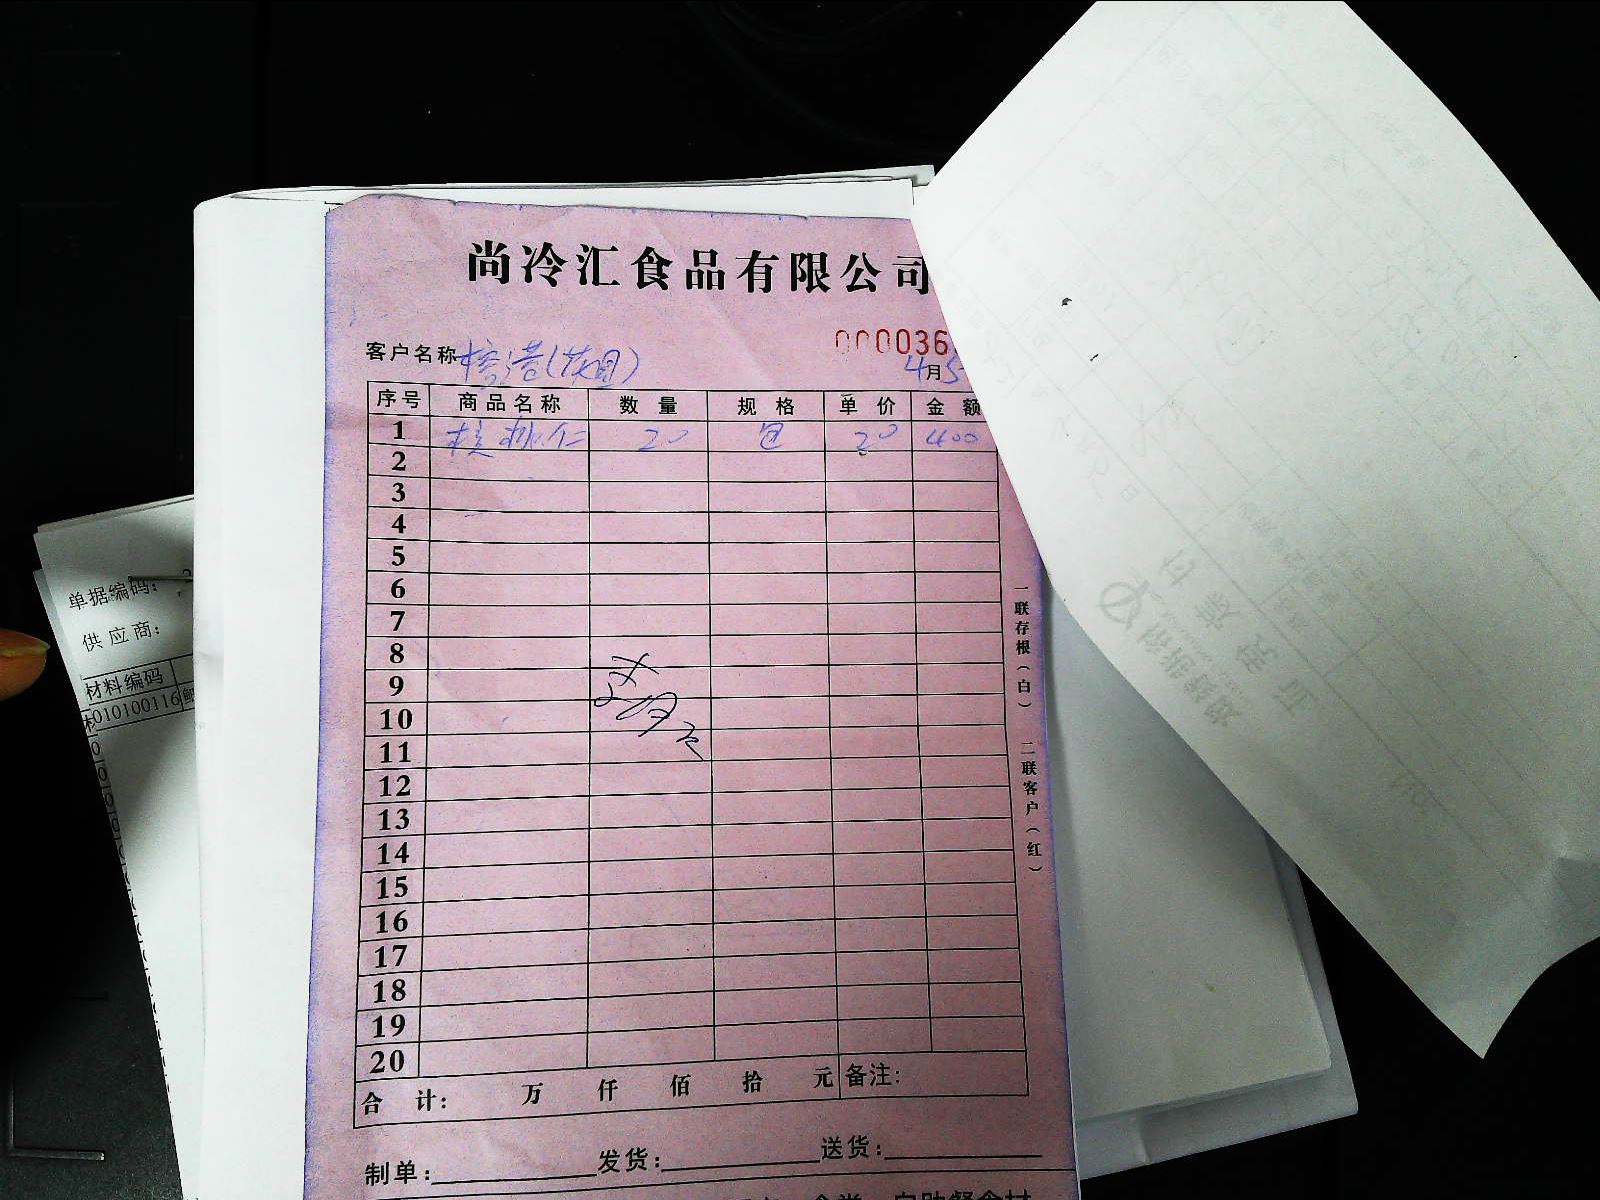 尚冷汇食品有限公司
000036
客户名称
4月5
序号 商品名称 数量 规格 单价 金额
1 核桃仁 20 包 20 400
2
3
4
5
6
7
8
9
10
11
12
13
14
15
16
17
18
19
20
合计: 万 仟 佰 拾 元 备注:
制单: 发货: 送货:
一联存根(白) 二联客户(红)
单据编码:
供应商:
材料编码
010100116
付款凭证